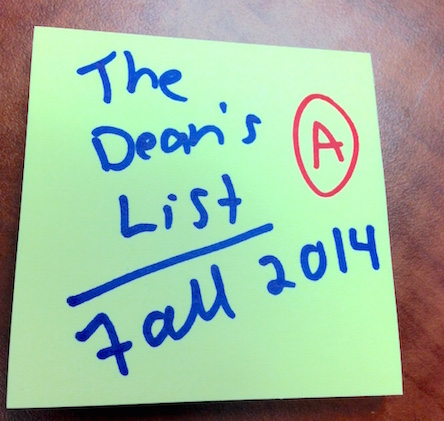 The
Dean's
List
A
Fall 2014